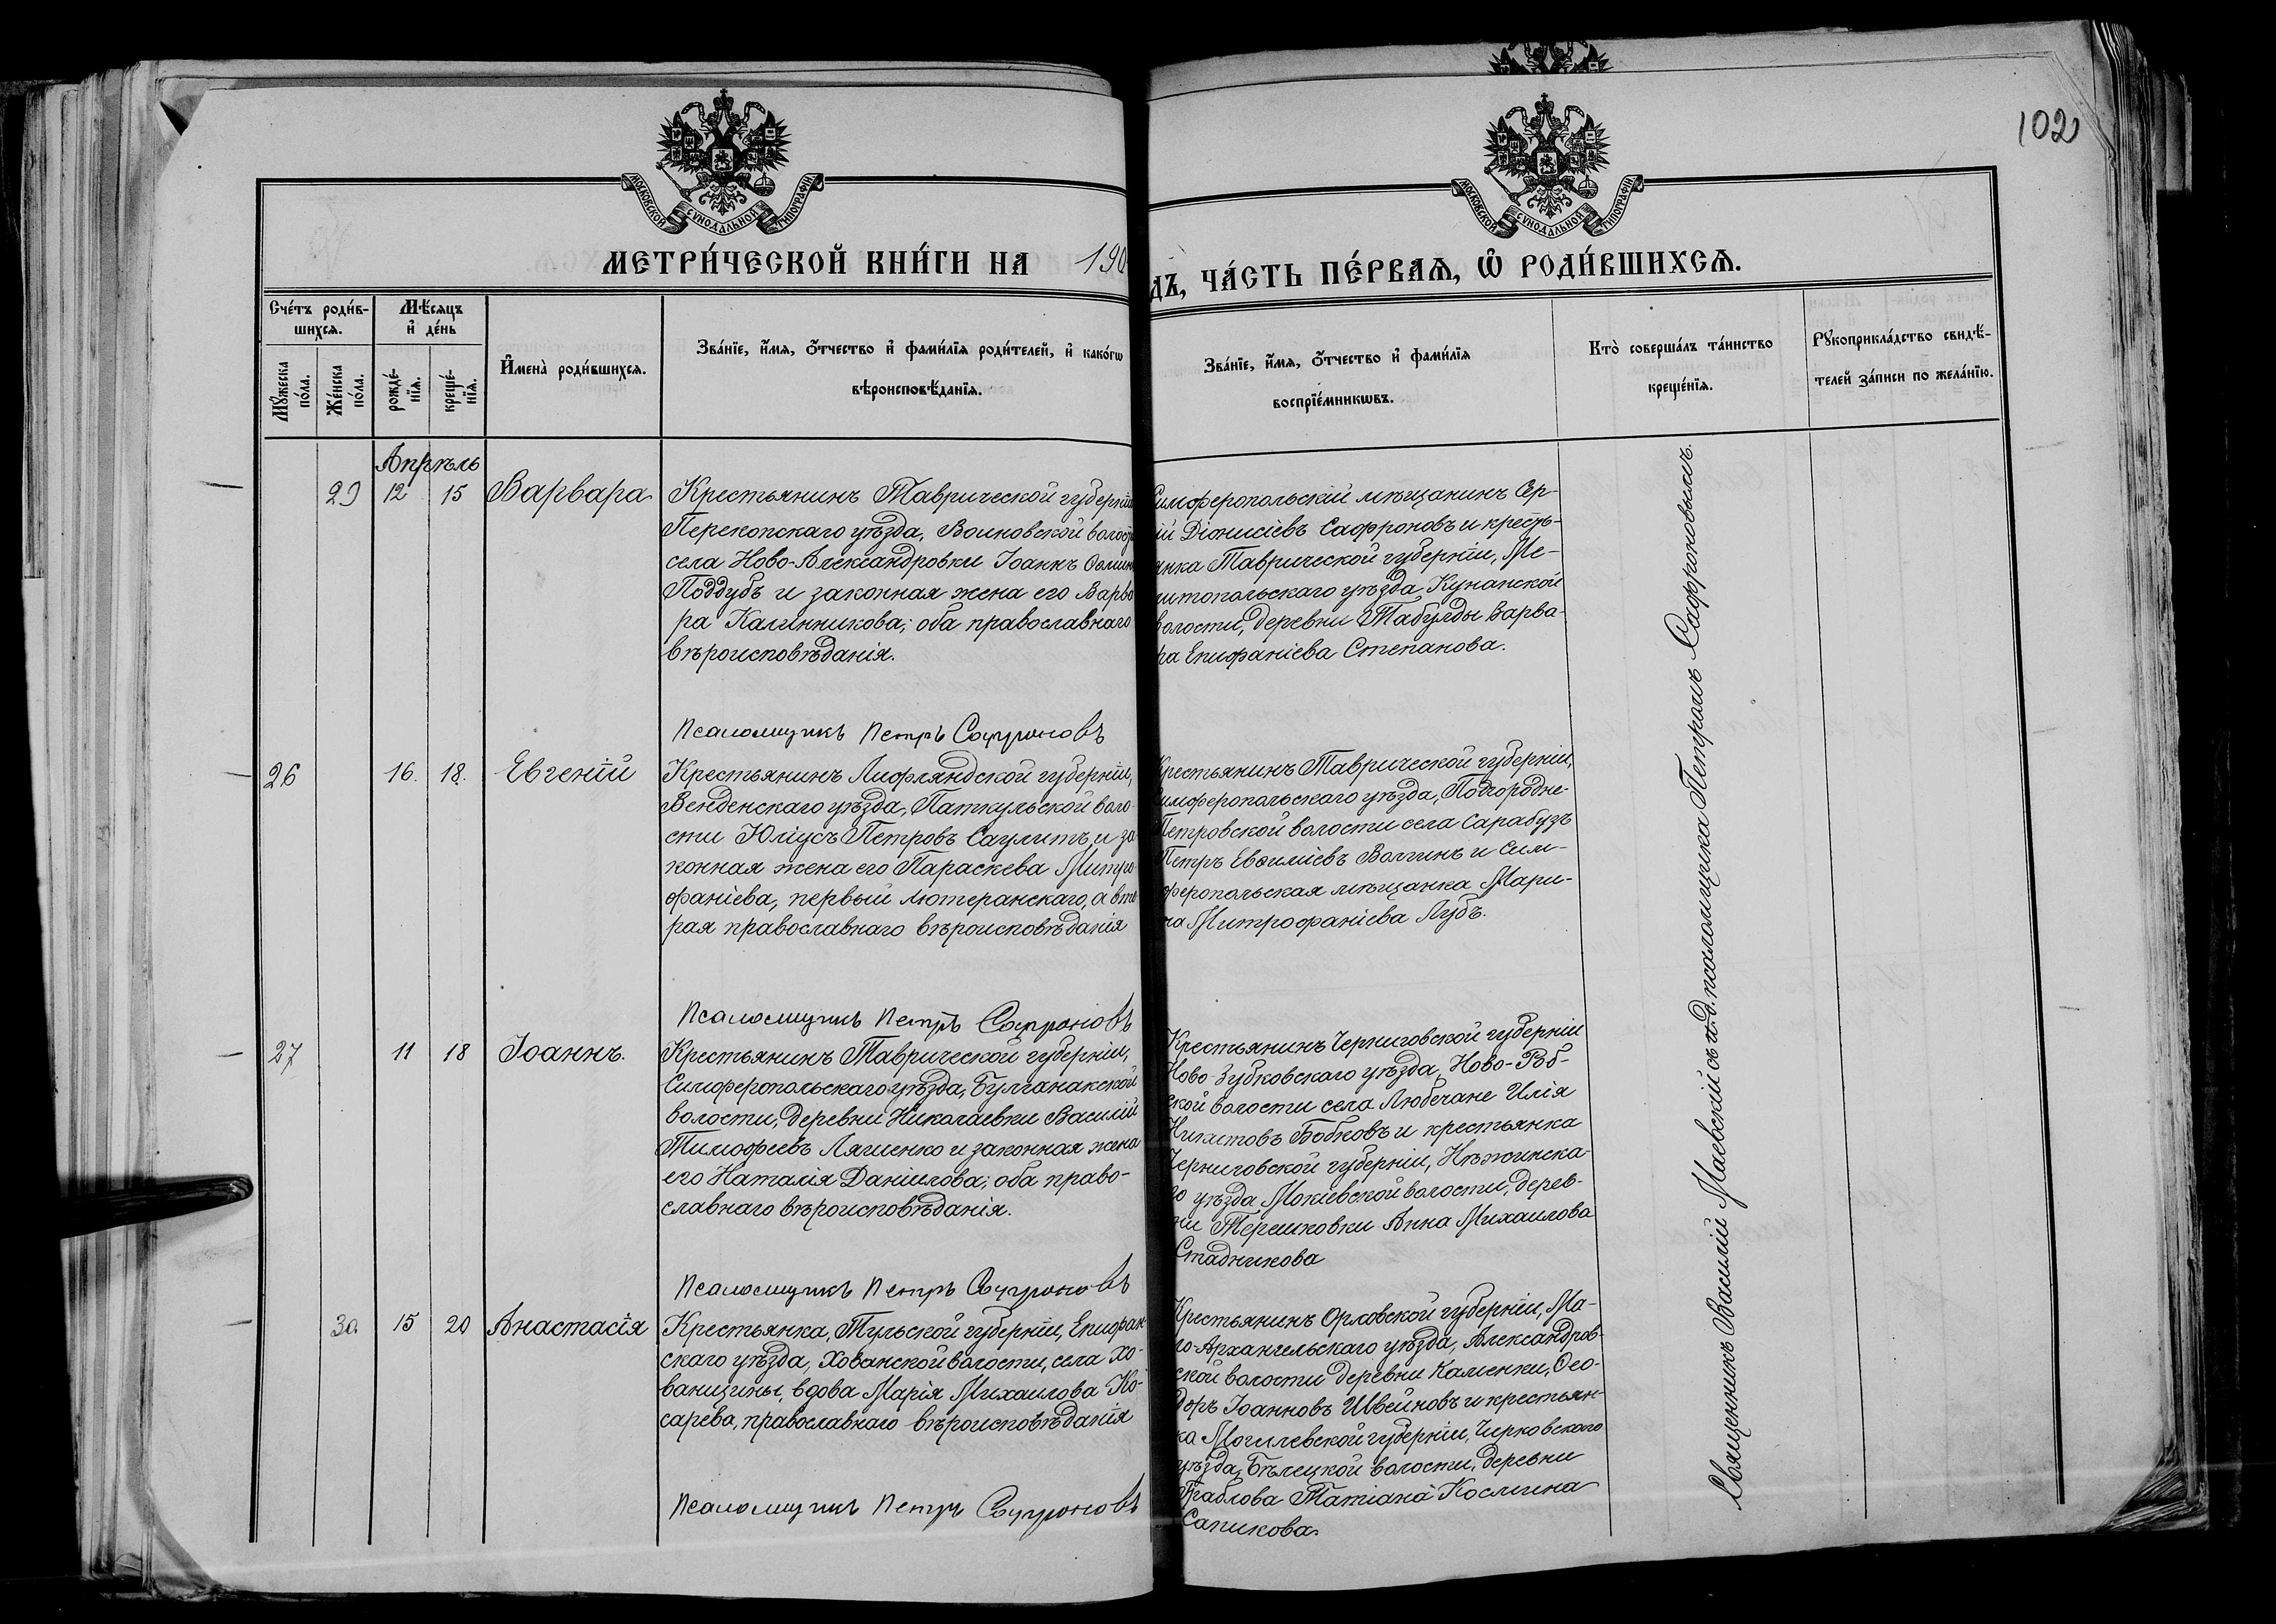 102
МОСКОВСКОЙ СУНОДАЛЬНОЙ ТИПОГРАФІИ
МОСКОВСКОЙ СУНОДАЛЬНОЙ ТИПОГРАФІИ
МЕТРИ́ЧЕСКОЙ КНИ́ГИ НА 190
ДЪ, ЧА́СТЬ ПЕ́РВАЯ, Ѡ҆ РОДИ́ВШИХСЯ.
Сче́тъ роди́в-
шихся.
Мꙋ́жеска
по́ла.
Же́нска
по́ла.
Мѣ́сяцъ
и҆ де́нь
рожде́-
нїя.
креще́-
нїя.
И҆мена̀ роди́вшихся.
Зва́нїе, и҆́мя, ѻ҆́тчество и҆ фами́лїя роди́телей, и҆ како́гѡ
вѣроисповѣ́данїя.
Зва́нїе, и҆́мя, ѻ҆́тчество и҆ фами́лїя
воспрїе́мникѡвъ.
Кто̀ соверша́лъ та́инство
креще́нїя.
Рꙋкоприкла́дство свидѣ́-
телей за́писи по жела́нїю.
Апрѣль
29 12 15 Варвара
Крестьянинъ Таврической губерніи
Перекопскаго уѣзда, Воиновской волост
села Ново-Александровки Іоаннъ Ѳомин
Поддубъ и законная жена его Варва
ра Калинникова; оба православнаго
вѣроисповѣданія.
Псаломщикъ Петръ Софроновъ
Симферопольскій мѣщанинъ Сер-
ій Діонисіевъ Сафроновъ и кресть-
янка Таврической губерніи, Ме-
литопольскаго уѣзда, Кунанской
волости, деревни Табулды Варва-
ра Епифаніева Степанова.
26 16. 18. Евгеній
Крестьянинъ Лифляндской губерніи,
Венденскаго уѣзда, Паткульской воло-
сти Юліусъ Петровъ Саулитъ, и за
конная жена его Параскева Митро
фаніева, первый лютеранскаго, а вто
рая православнаго вѣроисповѣданія
Псаломщикъ Петръ Софроновъ
Крестьянинъ Таврической губерніи,
Симферопольскаго уѣзда, Подгородне-
Петровской волости села Сарабузъ
Петръ Евѳиміевъ Волгинъ и Сим-
феропольская мѣщанка Мари-
на Митрофаніева Лубъ.
27 11 18 Іоаннъ.
Крестьянинъ Таврической губерніи,
Симферопольскаго уѣзда, Булганакской
волости, деревни Николаевки Василій
Тимофеевъ Ляшенко и законная жена
его Наталія Даніилова; оба право-
славнаго вѣроисповѣданія.
Псаломщикъ Петръ Софроновъ
Крестьянинъ Черниговской губерніи
Ново-Зубковскаго уѣзда, Ново-Роб-
ской волости села Любечане Илія
Никитовъ Бобковъ и крестьянка
Черниговской губерніи, Нѣжинска-
го уѣзда Мокіевской волости, дерев-
ни Терешковки Анна Михаилова
Стадникова
30 15 20 Анастасія
Крестьянка, Тульской губерніи, Епифан-
скаго уѣзда, Хованской волости, села Хо-
ванщины, вдова Марія Михаилова Ко-
сарева, православнаго вѣроисповѣданія
Псаломщикъ Петръ Софроновъ
Крестьянинъ Орловской губерніи, Ма-
ло-Архангельскаго уѣзда, Александров-
ской волости деревни Каменки, Ѳео-
доръ Іоанновъ Швейновъ и крестьян-
ка Могилевской губерніи, Чирковскаго
уѣзда, Бѣлецкой волости, деревни
Татіана Космина
Сапикова.
Священникъ Василій Маевскій съ и. д. псаломщика Петромъ Сафроновымъ.